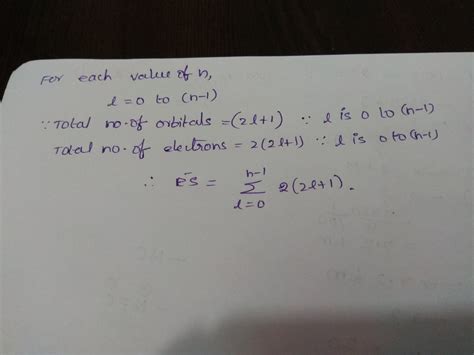 For each value of n,
l = 0 to (n-1)
∵ Total no. of orbitals = (2l+1) ∵ l is 0 to (n-1)
Total no. of electrons = 2(2l+1) ∵ l is 0 to (n-1)
∴ e̅s = n-1 Σ l=0 2(2l+1).